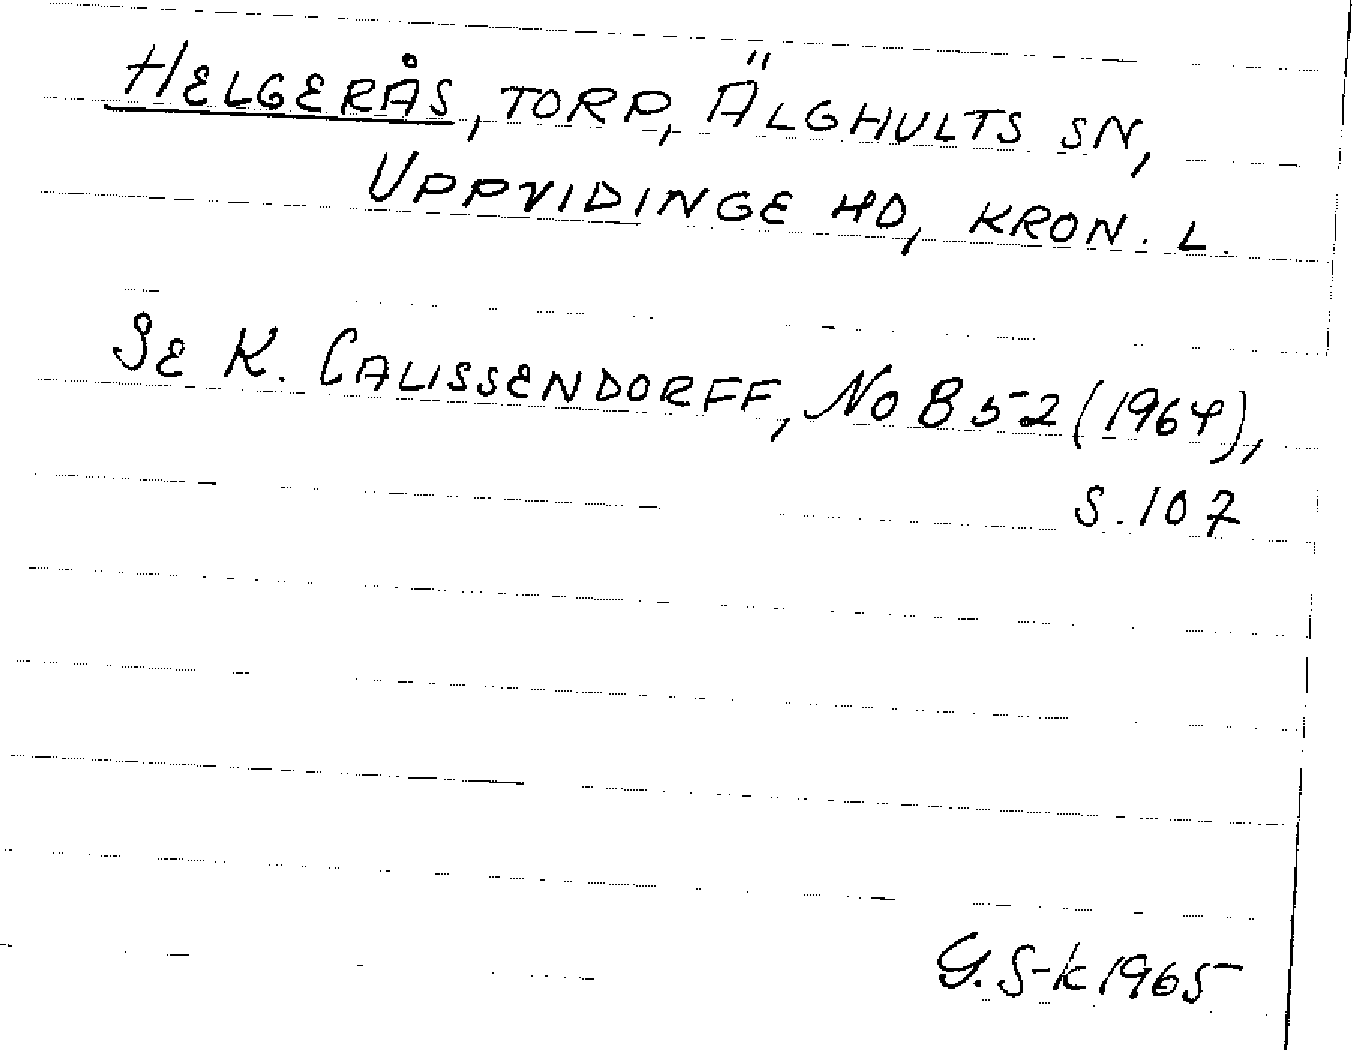 HELGERÅS, TORP, ÄLGHULTS SN,
UPPVIDINGE HD, KRON. L.
SE K. CALISSENDORFF, NoB 52 (1964),
S. 107
G. S-k 1965